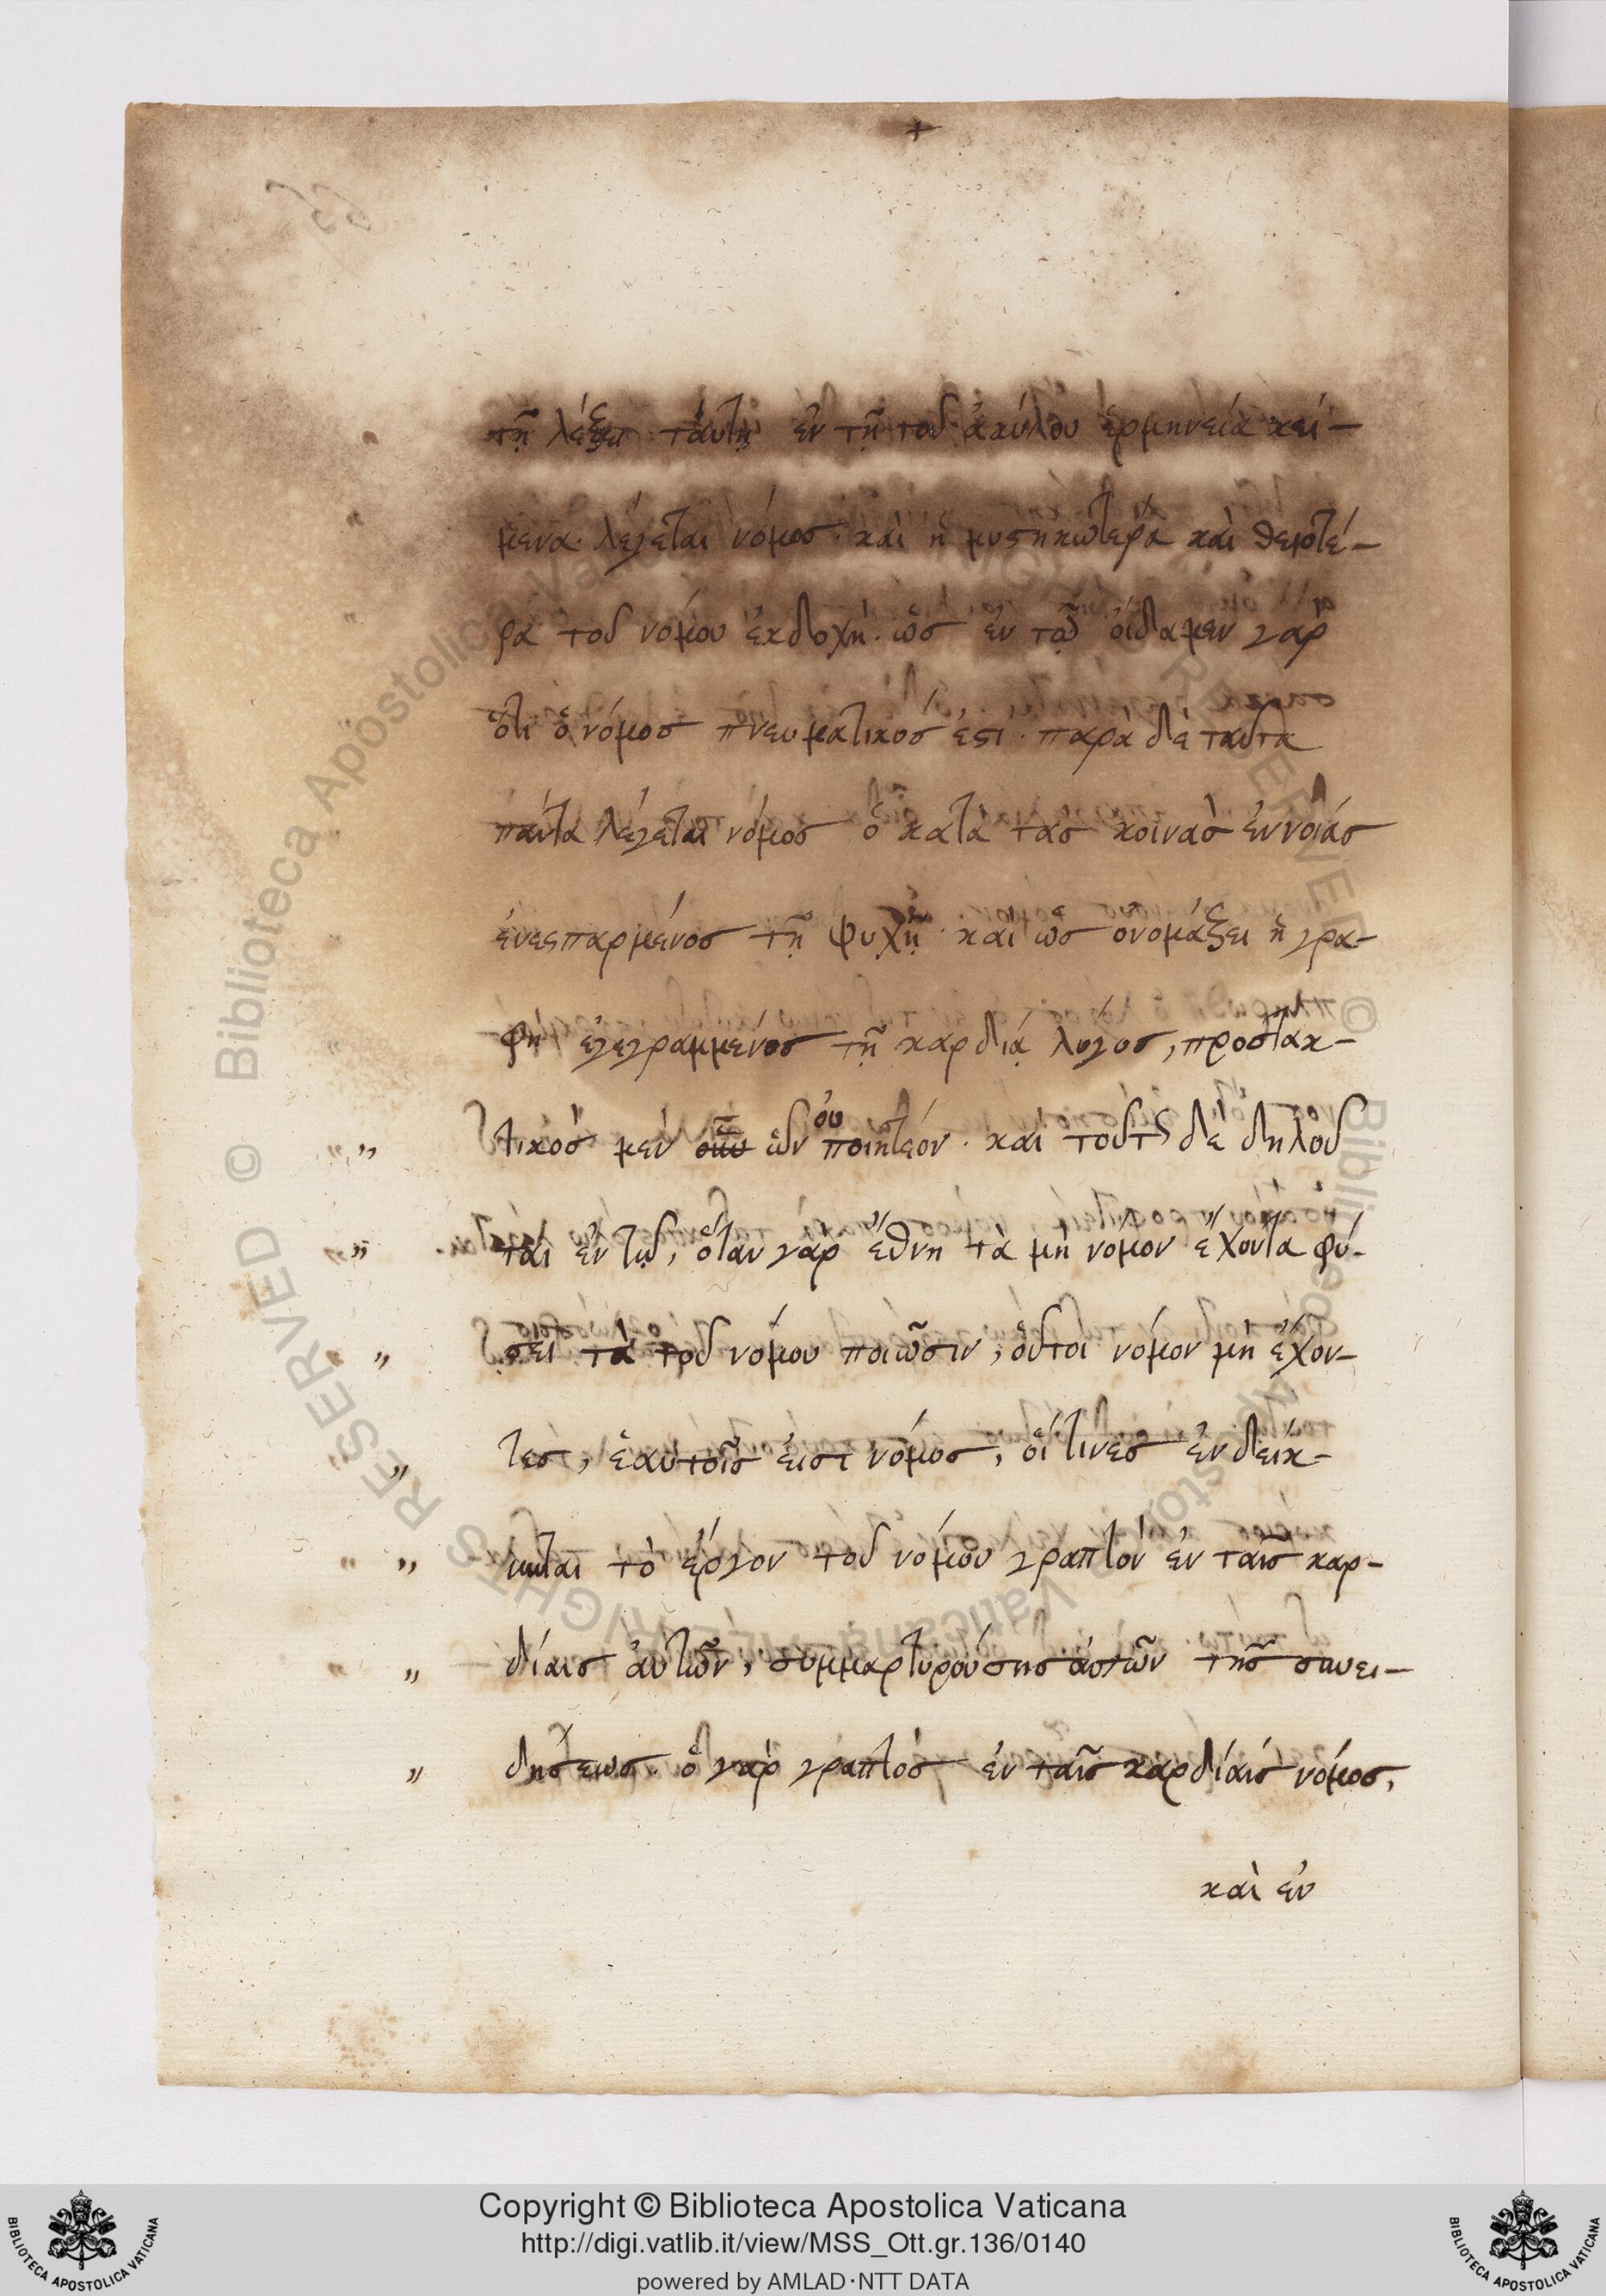 +
τῇ λέξει ταύτῃ ἐν τῇ τοῦ ἀκύλου ἑρμηνεία κεί-
μενα. λέγεται νόμος. καὶ ἡ μυστηκωτέρα καὶ θειοτέ-
ρα τοῦ νομου ἐκδοχή. ὡς ἐν τῷ οἴδαμεν γὰρ
ὅτι ὁ νόμος πνευματικός ἐστι. παρὰ δὲ ταῦτα
πάντα λέγεται νόμος ὁ κατὰ τὰς κοινὰς ἐννοίάς
ἐνεσπαρμένος τῇ ψυχῇ. καὶ ὡς ὀνομάξει ἡ γρα-
φὴ ἐγγεγραμμένος τῇ καρδίᾳ λόγος, προστακ-
„ τικὸς μὲν ὧν οὐ ποιητέον. καὶ τοῦτο δὲ δηλοῦ
„ ται ἐν τῷ, ὅταν γὰρ ἔθνη τὰ μὴ νόμον ἔχοντα φύ-
„ σει τὰ τοῦ νόμου ποιῶσιν, οὗτοι νόμον μὴ ἔχον-
„ τες, ἑαυτοῖς εἰσὶ νόμος, οἵ τινες ἐν δείκ-
„ νυται τὸ ἔργον τοῦ νόμου γραπτὸν ἐν ταῖς καρ-
„ δίαις αὐτῶν, συμμαρτυρούσης αὐτῶν τῆς συνει-
„ δησεως. ὁ γὰρ γραπτὸς ἐν ταῖς καρδίαις νόμος,
καὶ ἐν
© Biblioteca Apostolica Vaticana ALL RIGHTS RESERVED
Copyright © Biblioteca Apostolica Vaticana
http://digi.vatlib.it/view/MSS_Ott.gr.136/0140
powered by AMLAD·NTT DATA
BIBLIOTECA APOSTOLICA VATICANA
BIBLIOTECA APOSTOLICA VATICANA